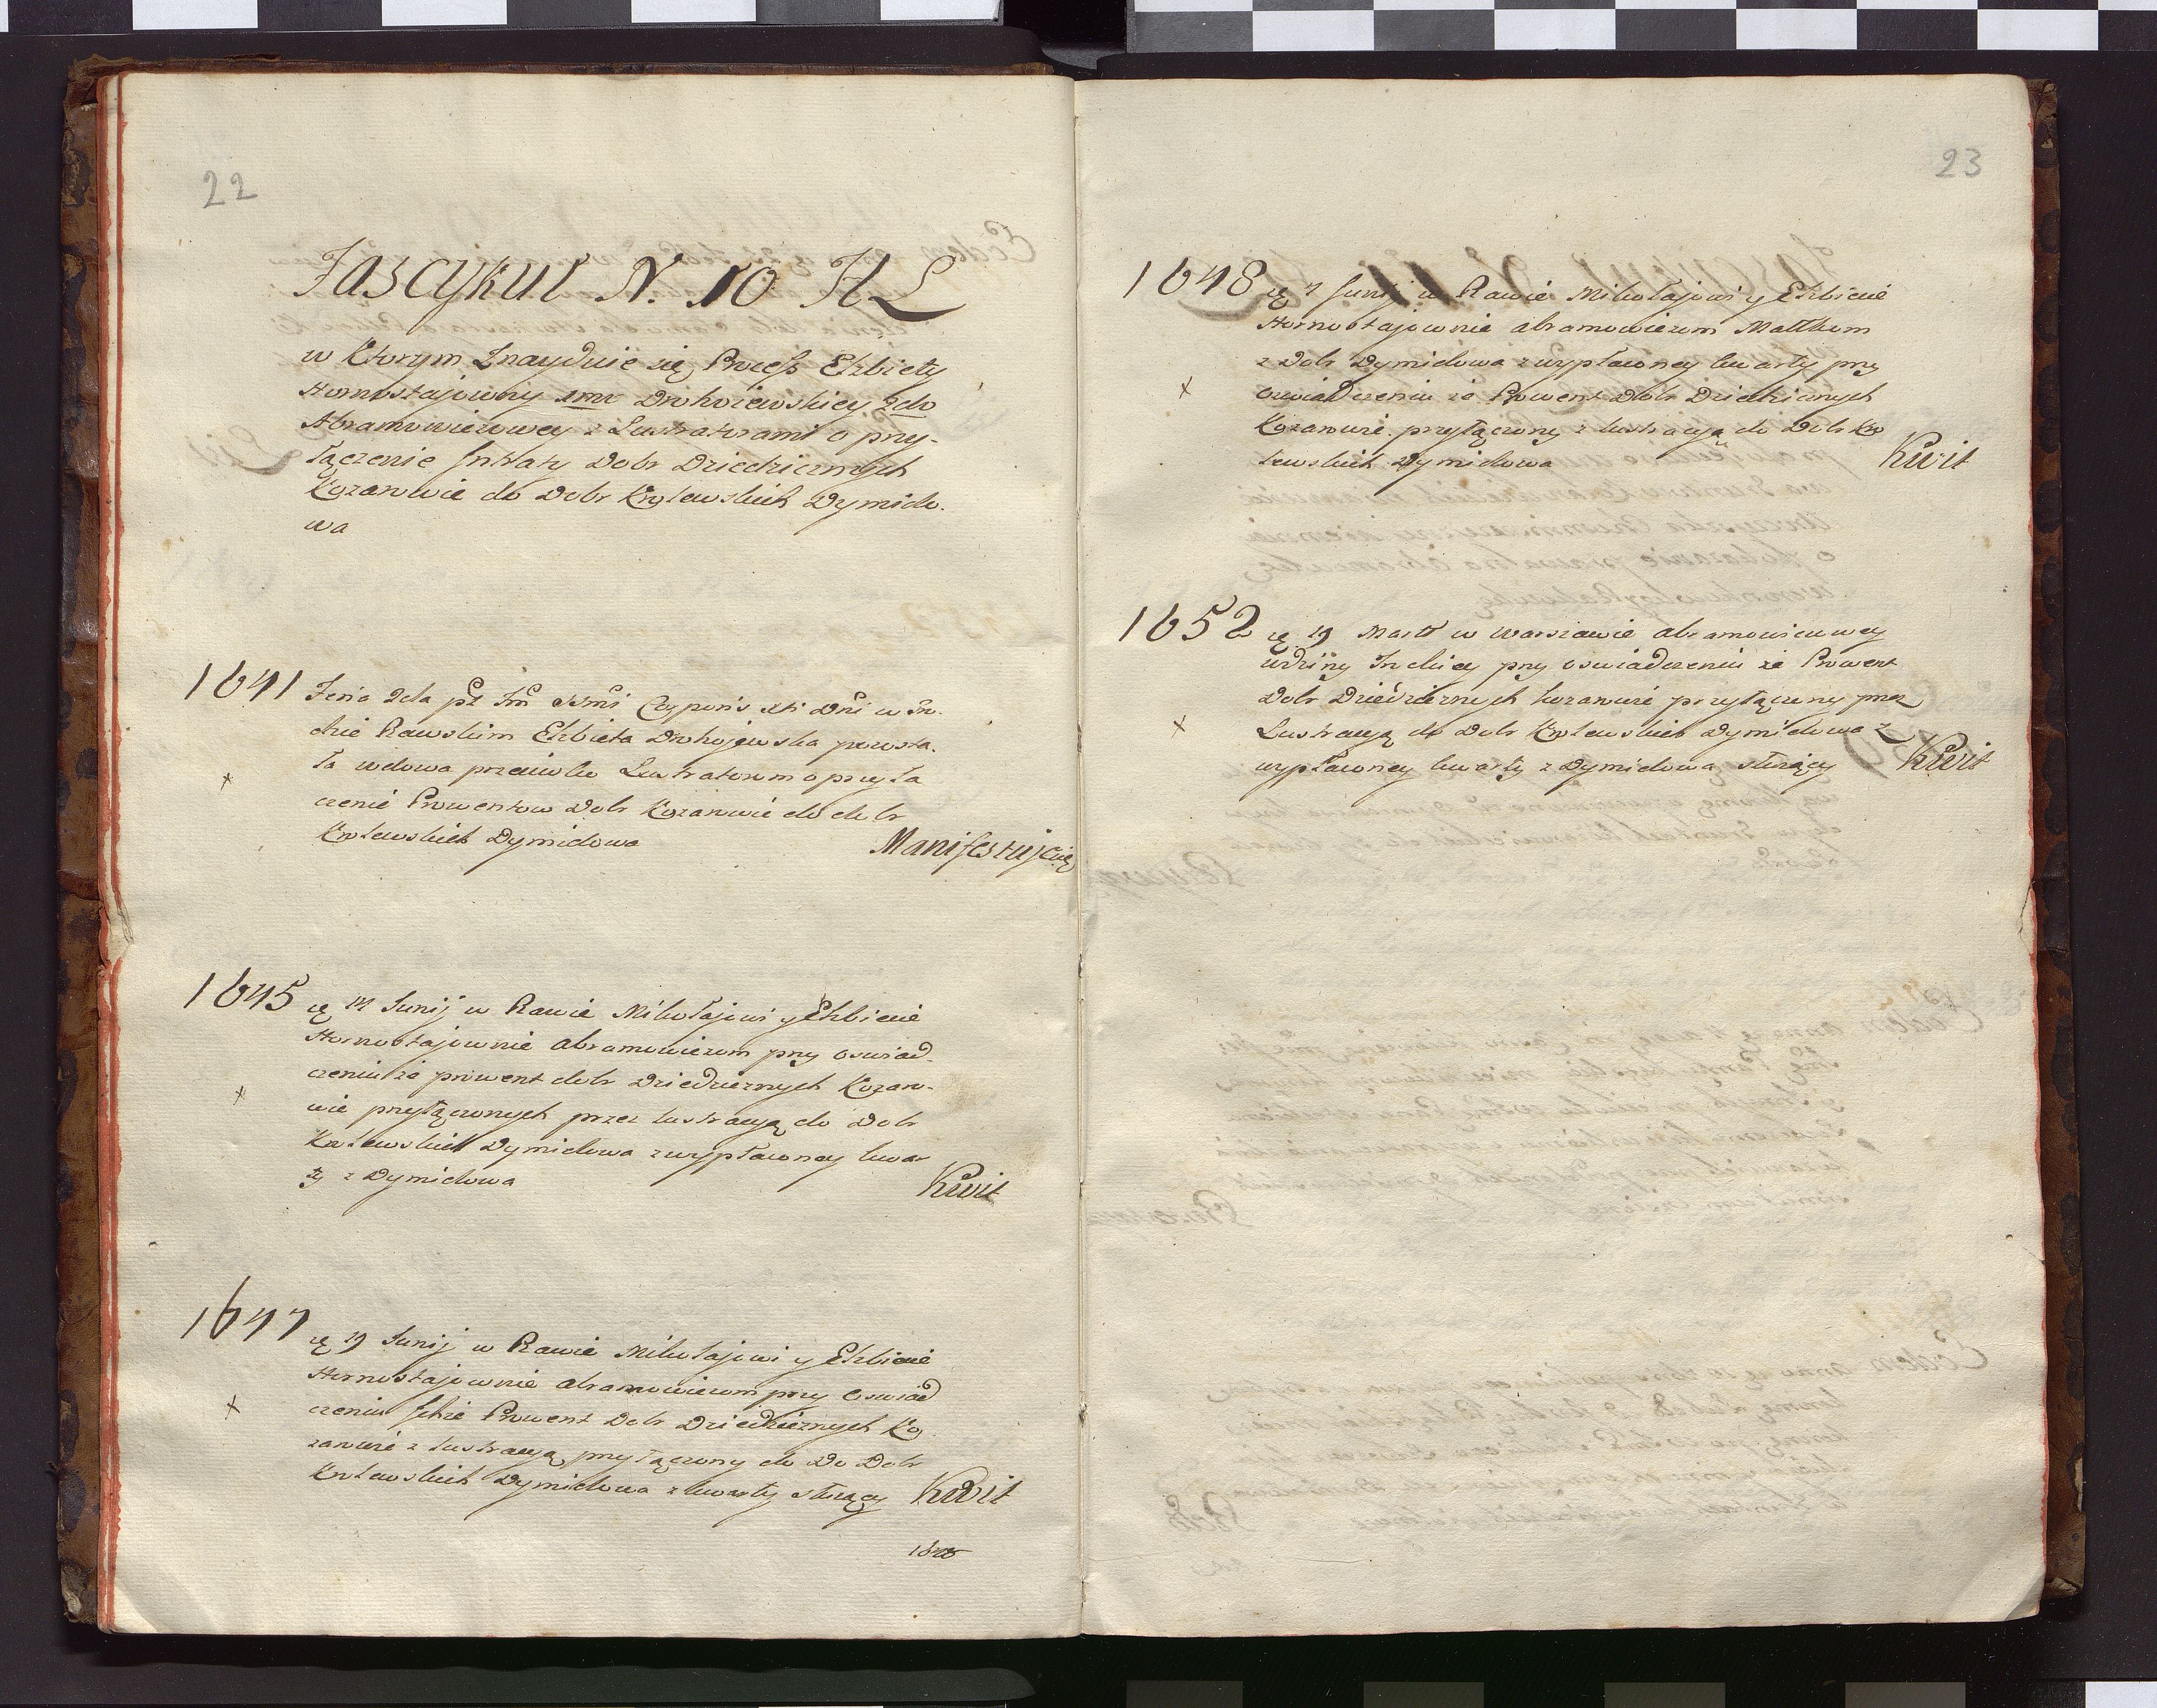 22
Fascykuł N. 10 H L
w Ktorym Znayduie się Process Elzbiety
Hornostajowny 1mo Drohoiewskiey 2do
Abramowiczowey z Lustratorami o przy-
łączenie Intraty Dobr Dziedzicznych
Kozanowie do Dobr Krolewskich Dymido-
wa
1641 Feria 2da pt Im Ssmi Corporis Xti Dni w Gro-
dzie Rawskim Elzbieta Drohojewska pozosta-
ła wdowa przeciwko Lustratorom o przyła
czenie Prowentow Dobr Kozanowie do dobr
Krolewskich Dymidowa
Manifestuje się
1645 ę 14 Junij w Rawie Mikołajowi y Elzbiecie
Hornostajownie Abramowiczom przy oswiad-
czeniu ze prowent dobr Dziedzicznych Kozano-
wie przyłączonych przez lustracyą do Dobr
Krolewskich Dymidowa z wypłaconey kwar
ty z Dymidowa
Kwit
1647 ę 19 Junij w Rawie Mikołajowi y Elzbiecie
Hornostajownie Abramowiczom przy Oswiad
czeniu Jchże Prowent Dobr Dziedzicznych Ko
zanowie z lustracyą przyłączony do Do Dobr
Krolewskich Dymidowa z kwarty służący Kwit
1648
23
1648 ę 7 Junij w Rawie Mikołajowi y Elzbiecie
Hornostajownie Abramowiczom Małżkom
z Dobr Dymidowa z wypłaconey kwarty przy
oswiadczeniu ze Prowent Dobr Dziedzicznych
Kozanowie przyłączony z lustracyą do Dobr Kro
lewskich Dymidowa
Kwit
1652 ę 19 Martij w Warszawie Abramowiczowey
wdziny przy oswiadczeniu ze Prowent
Dobr Dziedzicznych kozanowie przyłączony przez
Lustracyą do Dobr Krolewskich Dymidowa z
wypłaconey kwarty z Dymidowa służący Kwit